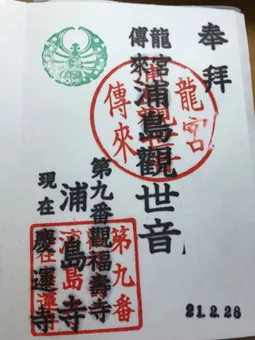 奉拝
龍宮
傳來
浦島觀世音
第九番觀福壽寺
浦島寺
現在 慶運寺
龍宮
傳來
第九番
21.2.28